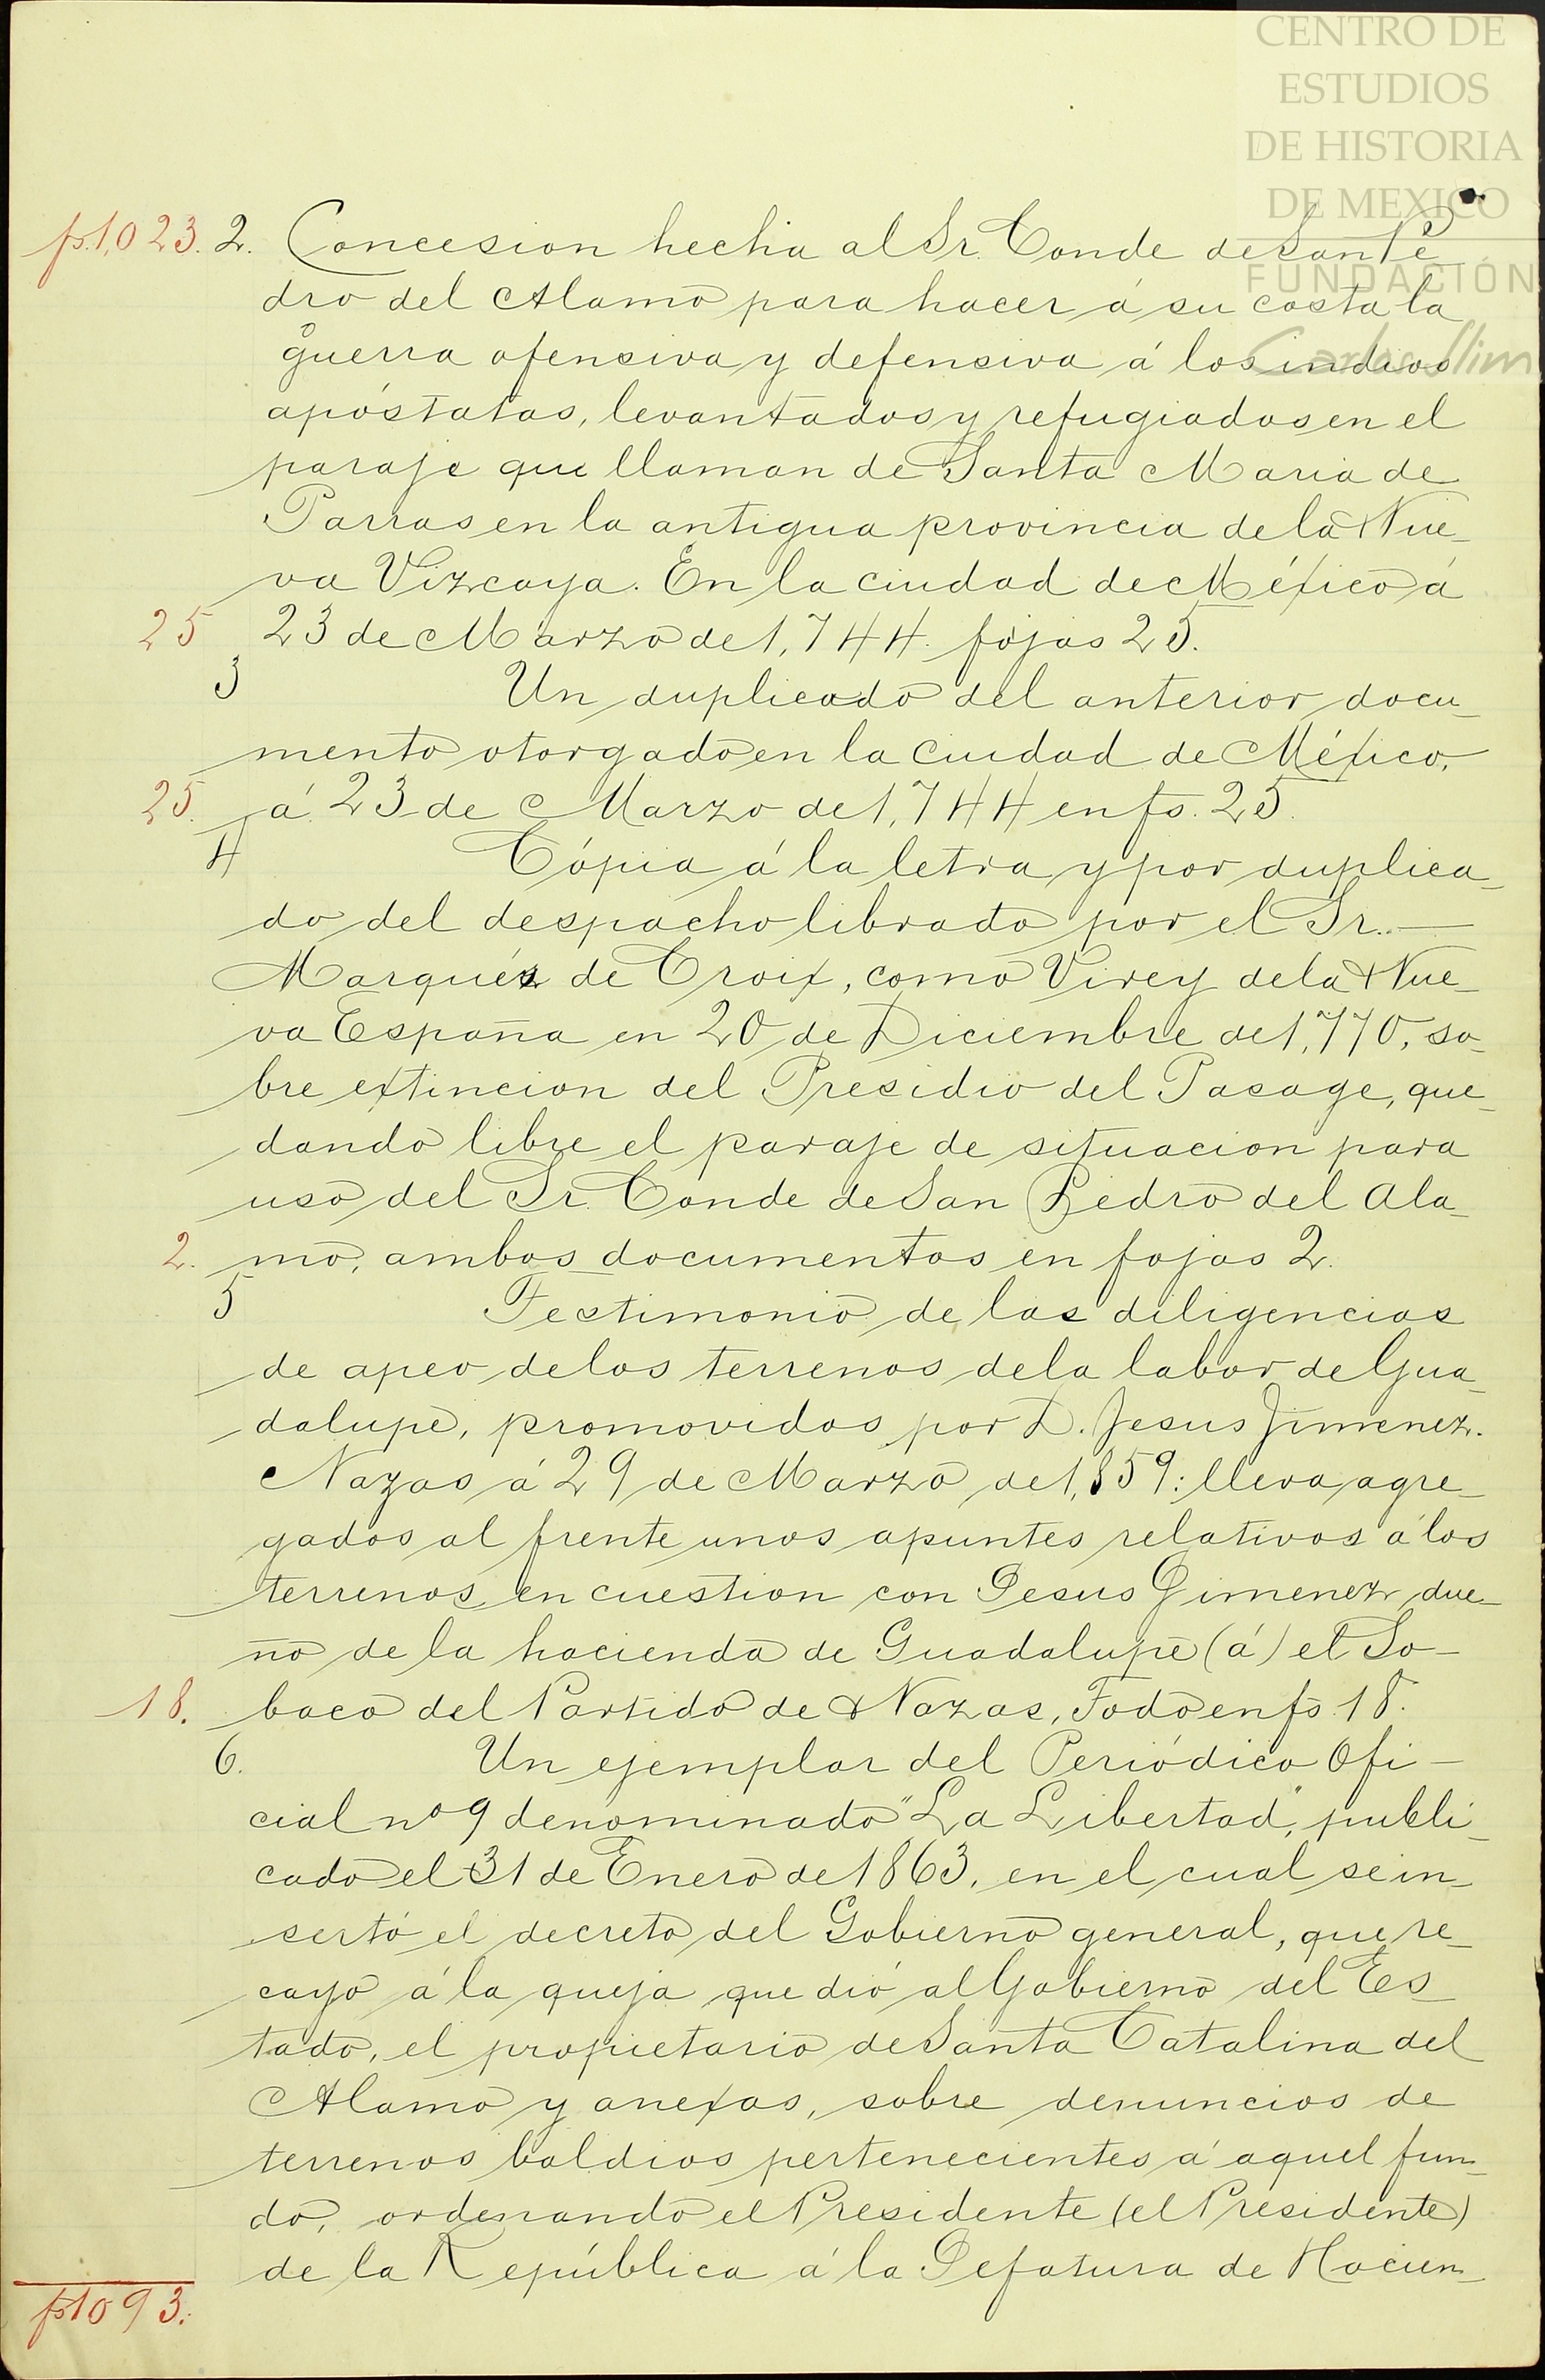 CENTRO DE
ESTUDIOS
DE HISTORIA
DE MEXICO
FUNDACIÓN
Carlos Slim
fs.1,023. 2. Concesion hecha al Sr. Conde de San Pe-
dro del Alamo para hacer á su costa la
guerra ofensiva y defensiva á los indios
apóstatas, levantados y refugiados en el
paraje que llaman de Santa Maria de
Parras en la antigua provincia de la Nue-
va Vizcaya. En la ciudad de México á
25 23 de Marzo de 1,744. fojas 25.
3 Un duplicado del anterior docu-
mento otorgado en la Ciudad de México,
25. á 23 de Marzo de 1,744 en fs. 25.
4 Cópia á la letra y por duplica-
do del despacho librado por el Sr.—
Marqués de Croix, como Virey de la Nue-
va España en 20 de Diciembre de 1,770, so-
bre extincion del Presidio del Pasage, que-
dando libre el paraje de situacion para
uso del Sr. Conde de San Pedro del Ala-
2. mo, ambos documentos en fojas 2.
5 Testimonio de las diligencias
de apeo de los terrenos de la labor de Gua-
dalupe, promovidas por D. Jesus Jimenez.
Nazas á 29 de Marzo de 1,859: lleva agre-
gados al frente unos apuntes relativos á los
terrenos en cuestion con Jesus Jimenez due-
ño de la hacienda de Guadalupe (á) el So-
18. baco del Partido de Nazas, Todo en fs. 18.
6. Un ejemplar del Periódico Ofi-
cial nº 9 denominado "La Libertad", publi-
cado el 31 de Enero de 1863, en el cual se in-
sertó el decreto del Gobierno general, que re-
cayó á la queja que dió al Gobierno del Es-
tado, el propietario de Santa Catalina del
Alamo y anexas, sobre denuncios de
terrenos baldios pertenecientes á aquel fun-
do, ordenando el Presidente (el Presidente)
de la República á la Jefatura de Hacien-
fs1093.